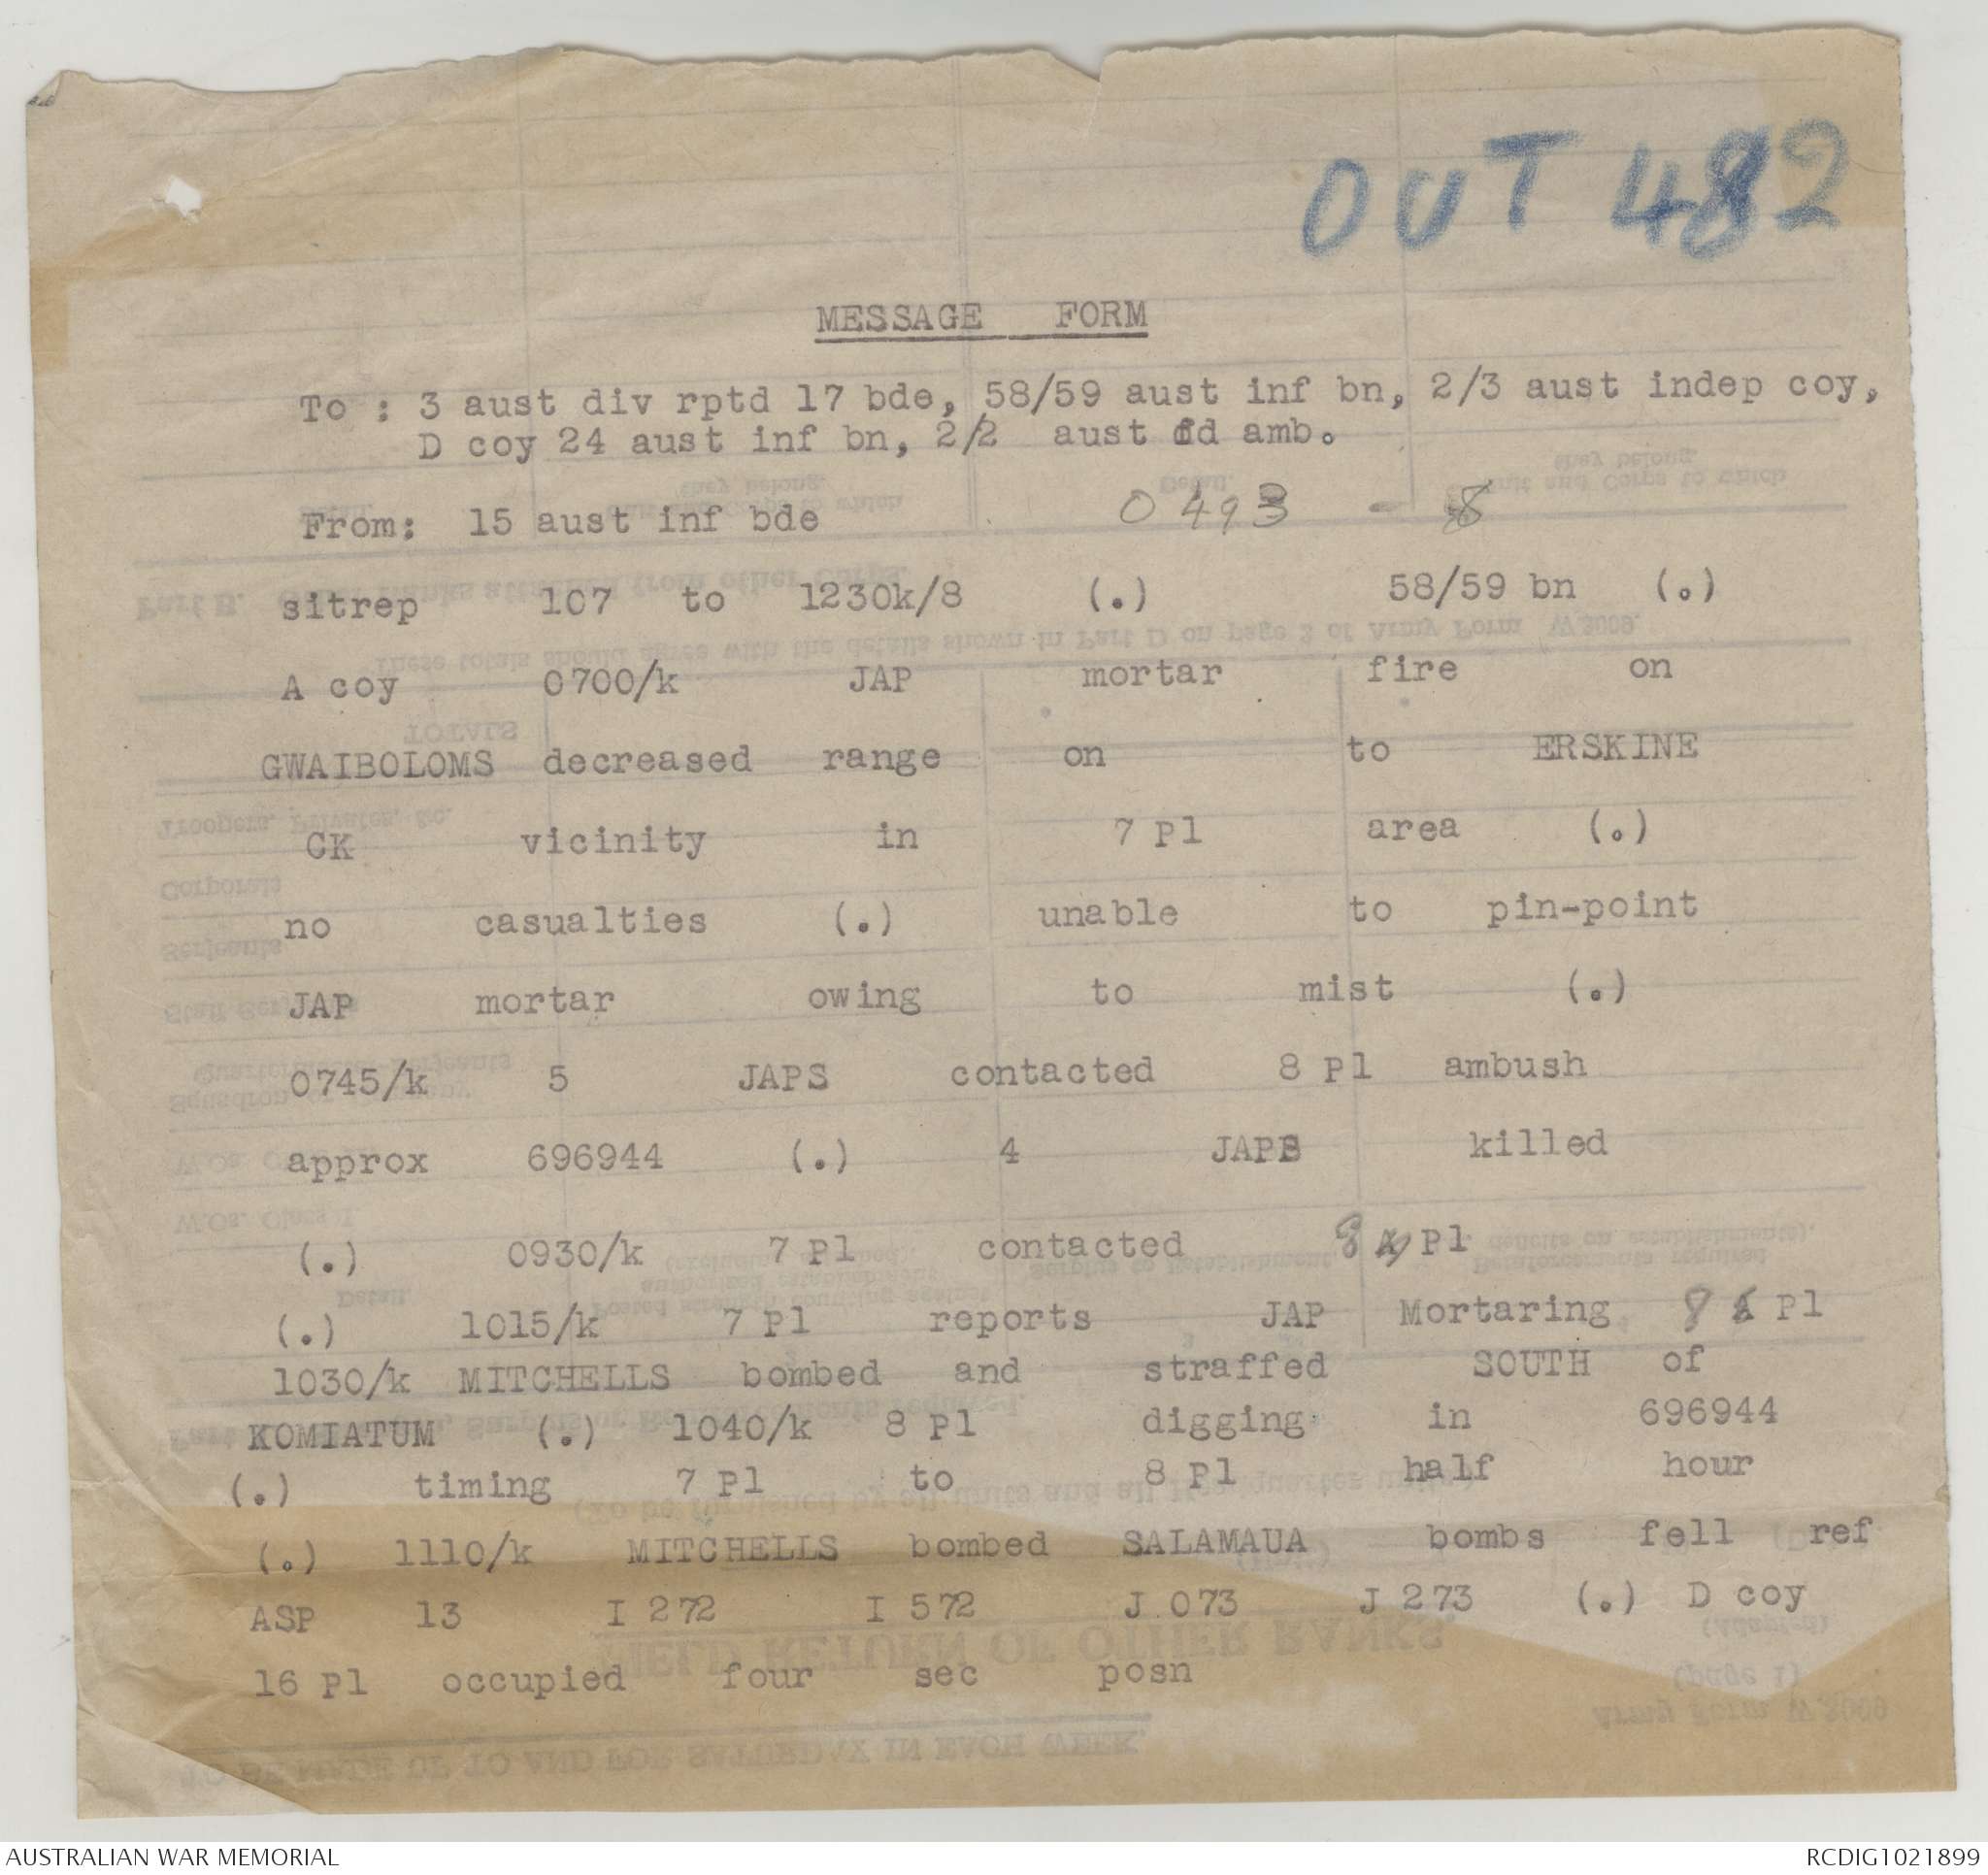 OUT 482
MESSAGE FORM
To : 3 aust div rptd 17 bde, 58/59 aust inf bn, 2/3 aust indep coy,
D coy 24 aust inf bn, 2/2 aust fd amb.
From: 15 aust inf bde 0493 - 8
sitrep 107 to 1230k/8 (.) 58/59 bn (.)
A coy 0700/k JAP mortar fire on
GWAIBOLOMS decreased range on to ERSKINE
CK vicinity in 7 Pl area (.)
no casualties (.) unable to pin-point
JAP mortar owing to mist (.)
0745/k 5 JAPS contacted 8 Pl ambush
approx 696944 (.) 4 JAPS killed
(.) 0930/k 7 Pl contacted 8 Pl
(.) 1015/k 7 Pl reports JAP Mortaring 8 Pl
1030/k MITCHELLS bombed and straffed SOUTH of
KOMIATUM (.) 1040/k 8 Pl digging in 696944
(.) timing 7 Pl to 8 Pl half hour
(.) 1110/k MITCHELLS bombed SALAMAUA bombs fell ref
ASP 13 I 272 I 572 J 073 J 273 (.) D coy
16 Pl occupied four sec posn
AUSTRALIAN WAR MEMORIAL
RCDIG1021899